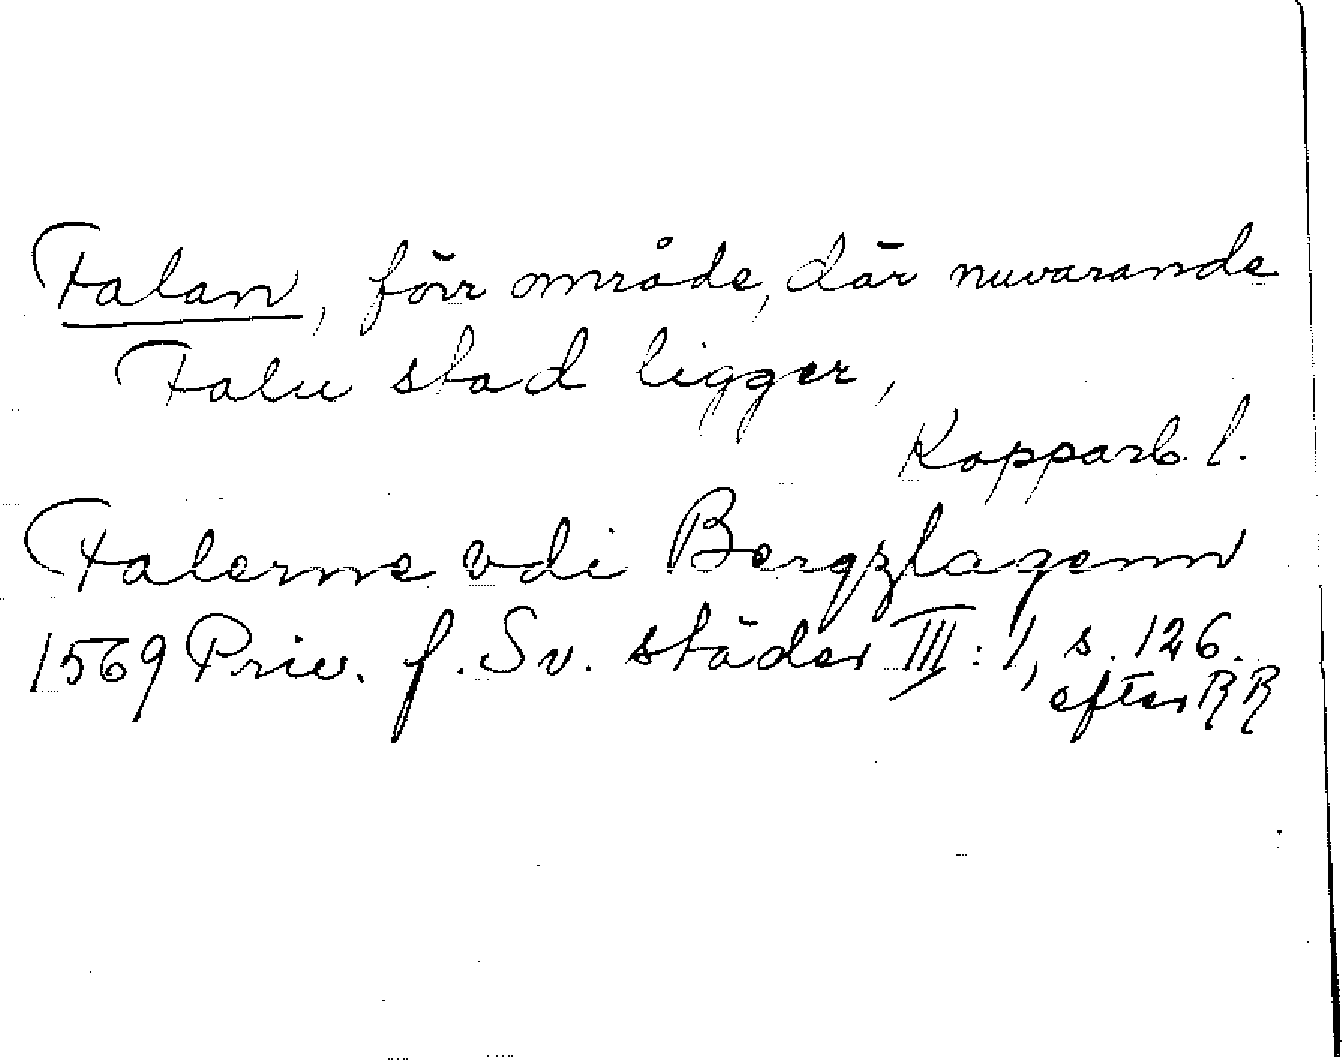 Falan, förr område, där nuvarande
Falu stad ligger,
Kopparb. l.
Falerne vdi Bergzlagenn
1569 Priv. f. Sv. städer III:1, s. 126.
efter RR